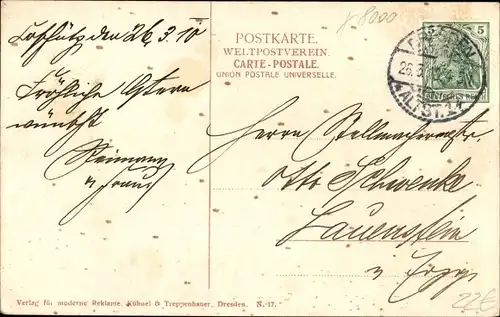 Coschütz den 26.3.10
Fröhliche Ostern
wünscht
u Frau
POSTKARTE.
WELTPOSTVEREIN.
CARTE-POSTALE.
UNION POSTALE UNIVERSELLE.
8000
5 5
DEUTSCHES REICH
26.3.
ALTST.
Herrn Stellmachermstr.
Otto Schwenke
Lauenstein
i/ Erzg.
Verlag für moderne Reklame, Kühnel & Treppenhauer, Dresden. N. 17.